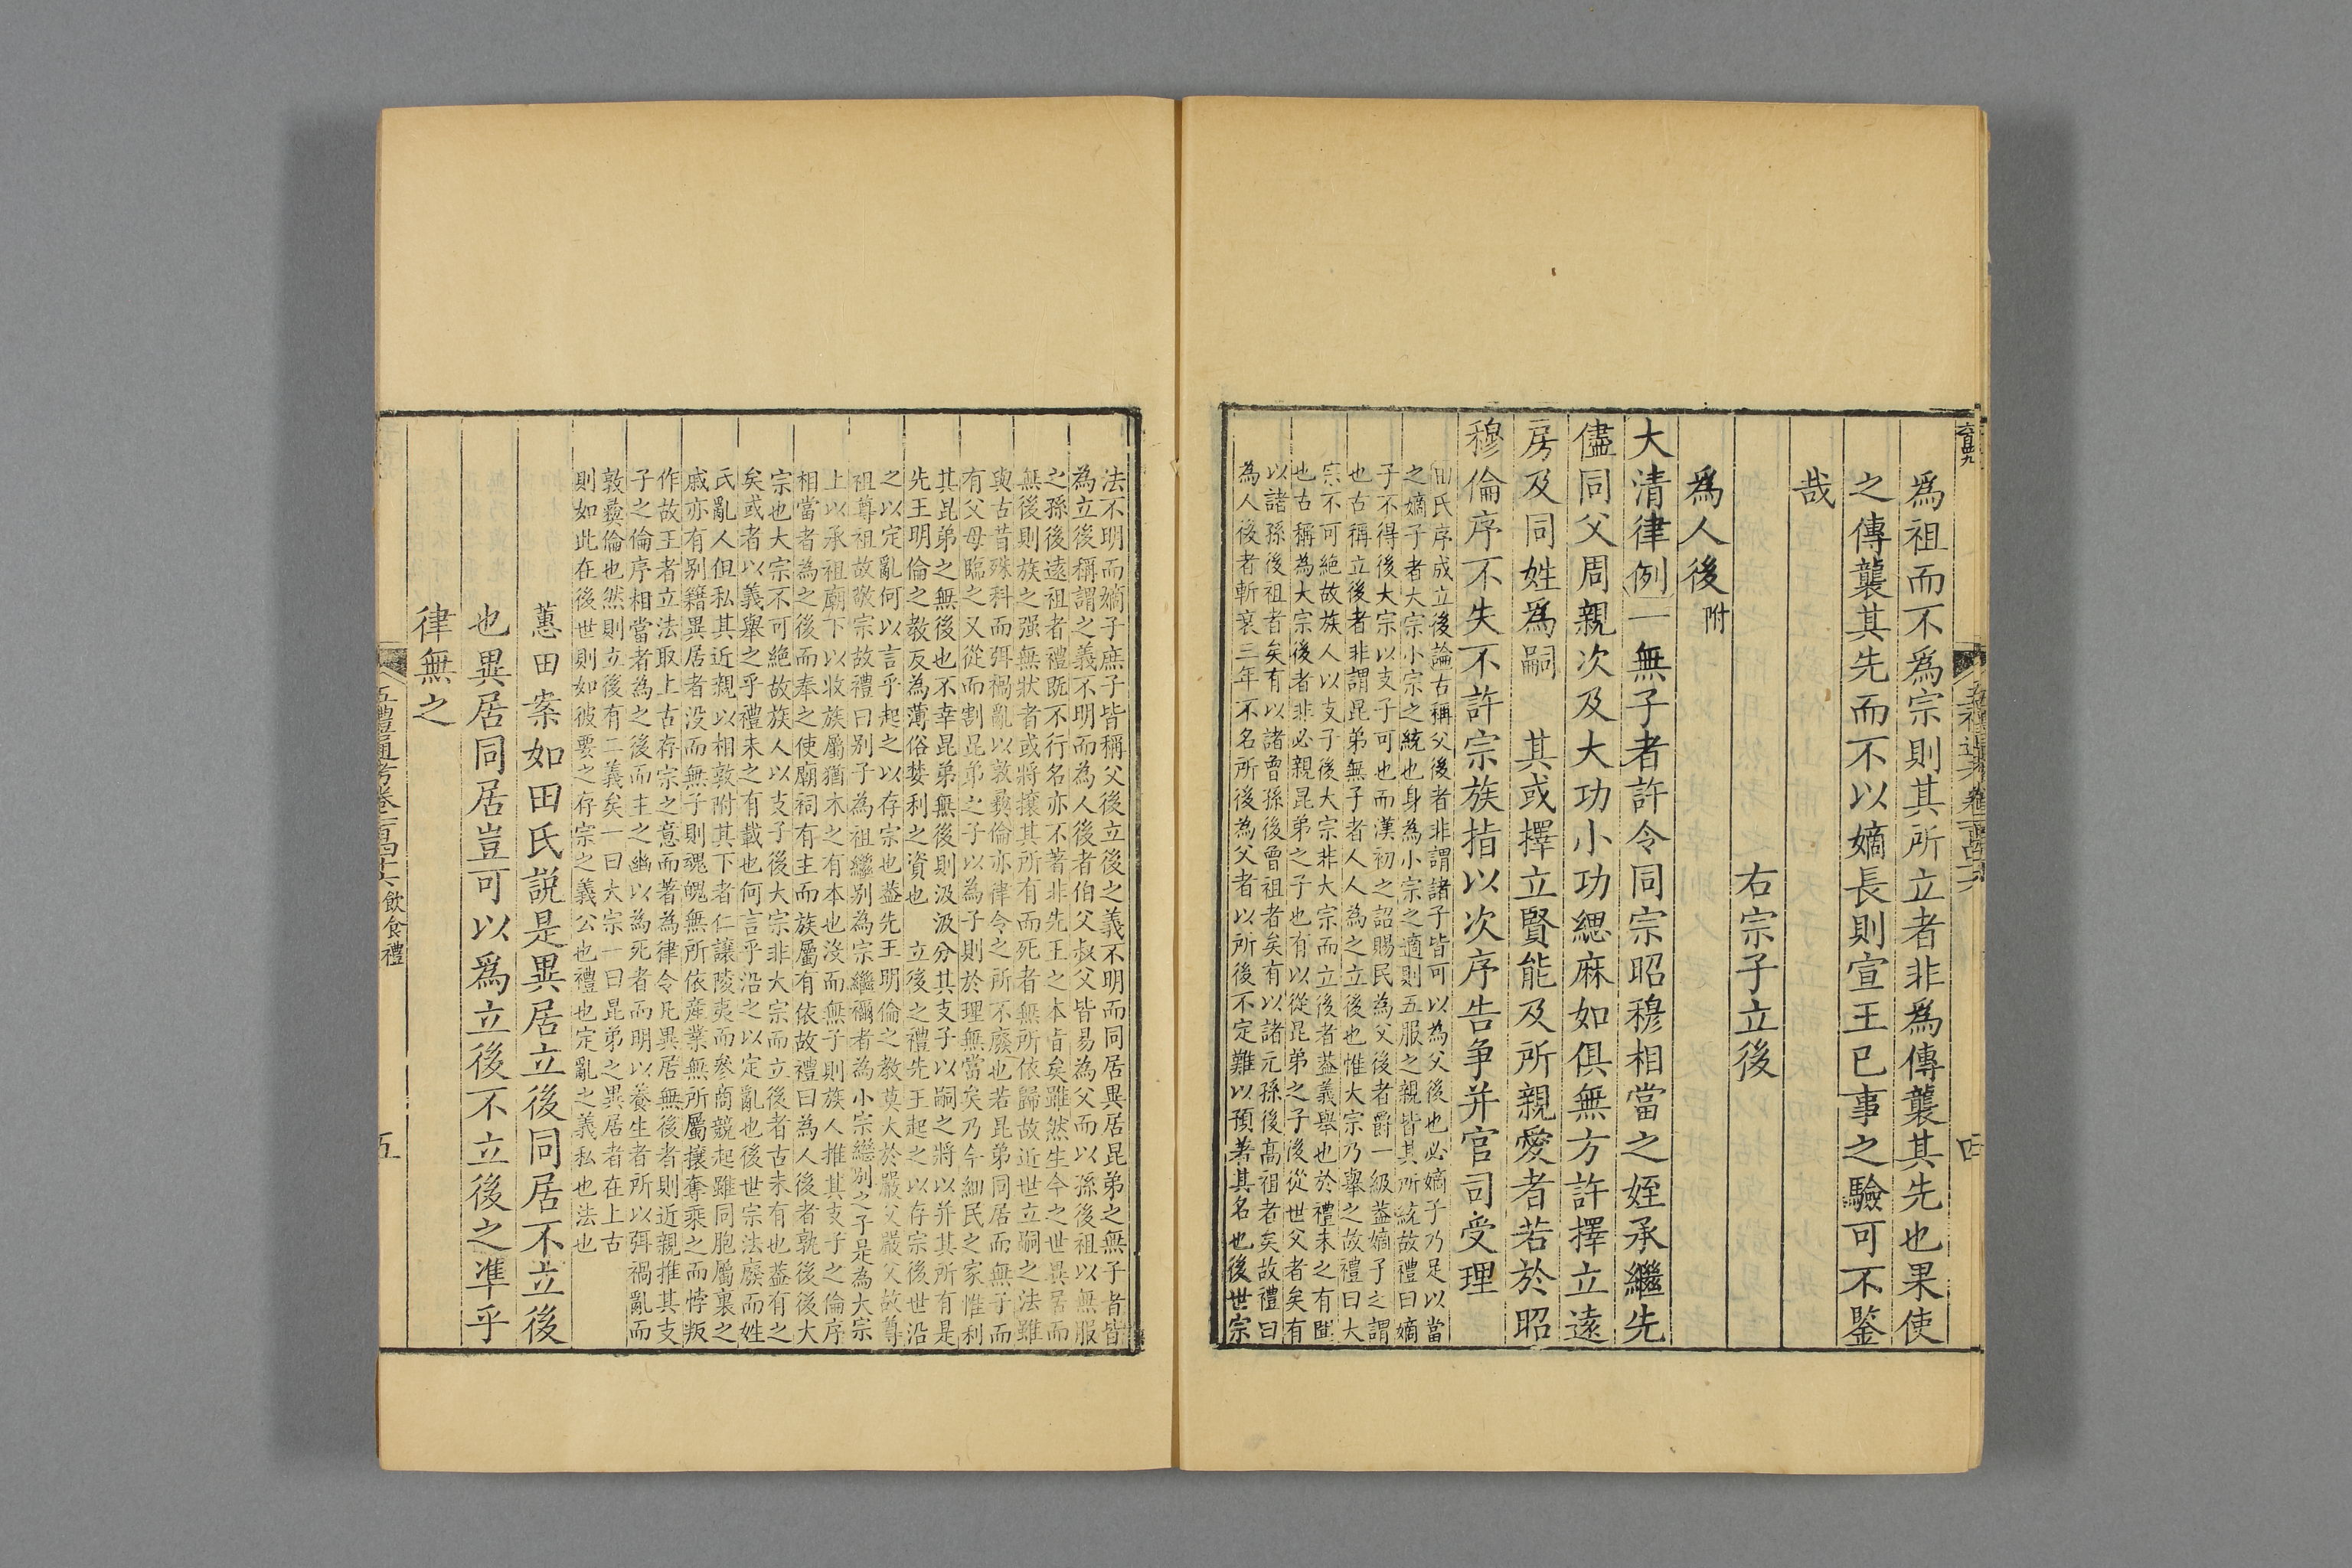 爲祖而不爲宗則其所立者非爲傳襲其先也果使
之傳襲其先而不以嫡長則宣王已事之驗可不鑒
哉
右宗子立後
爲人後附
大清律例一無子者許令同宗昭穆相當之姪承繼先
儘同父周親次及大功小功緦麻如俱無方許擇立遠
房及同姓爲嗣 其或擇立賢能及所親愛者若於昭
穆倫序不失不許宗族指以次序告争并官司受理
田氏序成立後論古稱父後者非謂諸子皆可以為父後也必嫡子乃足以當
之嫡子者大宗小宗之統也身為小宗之適則五服之親皆其所統故禮曰嫡
子不得後大宗以支子可也而漢初之詔賜民為父後者爵一級葢嫡子之謂
也古稱立後者非謂昆弟無子者人人為之立後也惟大宗乃舉之故禮曰大
宗不可絶故族人以支子後大宗非大宗而立後者葢義舉也於禮未之有聞
也古稱為大宗後者非必親昆弟之子也有以從昆弟之子後從世父者矣有
以諸孫後祖者矣有以諸曾孫後曾祖者矣有以諸元孫後高祖者矣故禮曰
為人後者斬衰三年不名所後為父者以所後不定難以預著其名也後世宗
法不明而嫡子庶子皆稱父後立後之義不明而同居異居昆弟之無子者皆
為立後稱謂之義不明而為人後者伯父叔父皆易為父而以孫後祖以無服
之孫後遠祖者禮既不行名亦不著非先王之本旨矣雖然生今之世異居而
無後則族之强無狀者或將攘其所有而死者無所依歸故近世立嗣之法雖
與古昔殊科而弭禍亂以敦彝倫亦律令之所不廢也若昆弟同居而無子而
有父母臨之又從而割昆弟之子以為子則於理無當矣乃今細民之家惟利
其昆弟之無後也不幸昆弟無後則汲汲分其支子以嗣之將以并其所有是
先王明倫之教反為薄俗婪利之資也 立後之禮先王起之以存宗後世沿
之以定亂何以言乎起之以存宗也葢先王明倫之教莫大於嚴父嚴父故尊
祖尊祖故敬宗故禮曰别子為祖繼别為宗繼禰者為小宗繼别之子是為大宗
上以承祖廟下以收族屬猶木之有本也沒而無子則族人推其支子之倫序
相當者為之後而奉之使廟祠有主而族屬有依故禮曰為人後者孰後後大
宗也大宗不可絶故族人以支子後大宗非大宗而立後者古未有也葢有之
矣或者以義舉之乎禮未之有載也何言乎沿之以定亂也後世宗法廢而姓
氏亂人但私其近親以相敦附其下者仁讓陵夷而參商競起雖同胞屬裏之
戚亦有别籍異居者没而無子則魂魄無所依産業無所屬攘奪乘之而悖叛
作故王者立法取上古存宗之意而著為律令凡異居無後者則近親推其支
子之倫序相當者為之後而主之幽以為死者而明以養生者所以弭禍亂而
敦彝倫也然則立後有二義矣一曰大宗一曰昆弟之異居者在上古
則如此在後世則如彼要之存宗之義公也禮也定亂之義私也法也
蕙田案如田氏説是異居立後同居不立後
也異居同居豈可以爲立後不立後之準乎
律無之
五禮通考卷一百四十六 飲食禮
五